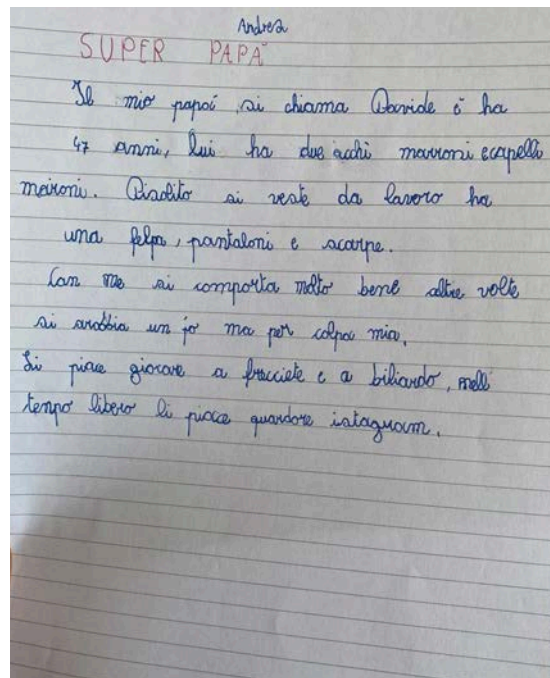 Andrea
SUPER PAPÀ
Il mio papà si chiama Davide è ha
47 anni, lui ha due occhi marroni e capelli
marroni. Disolito si veste da lavoro ha
una felpa, pantaloni e scarpe.
Con me si comporta molto bene altre volte
si arabbia un po ma per colpa mia.
Li piace giocare a frecciete e a biliardo, nell
tempo libero li piace guardare istagram.